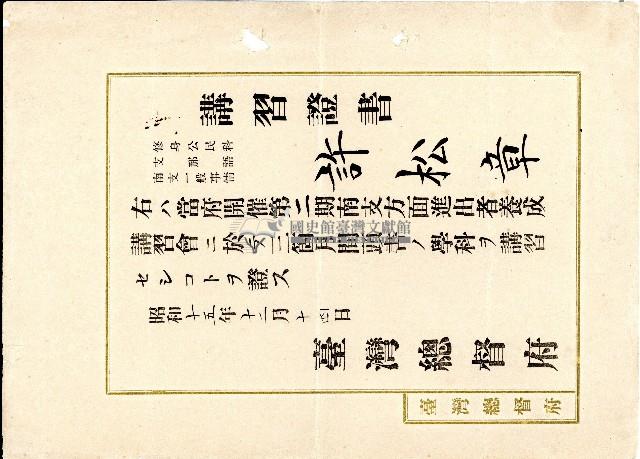 講習證書
修身公民科
支那語
南支一般事情
許松章
右ハ當府開催第二期南支方面進出者養成
講習會ニ於テ三箇月間頭書ノ學科ヲ講習
セシコトヲ證ス
昭和十五年十二月十四日
臺灣總督府
臺灣總督府
國史館臺灣文獻館